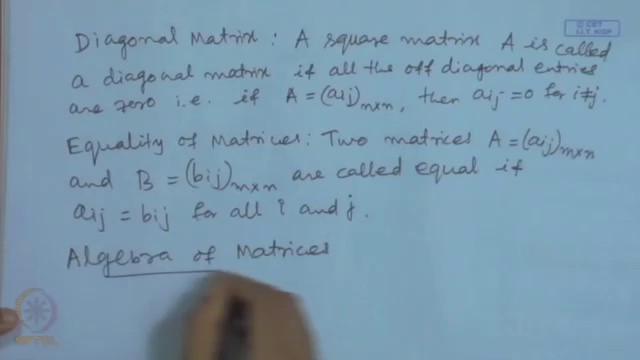 © CET
I.I.T. KGP
Diagonal Matrix : A square matrix A is called
a diagonal matrix if all the off diagonal entries
are zero i.e. if A = (aij)n×n, then aij = 0 for i≠j.
Equality of Matrices : Two matrices A = (aij)m×n
and B = (bij)m×n are called equal if
aij = bij for all i and j.
Algebra of Matrices
NPTEL